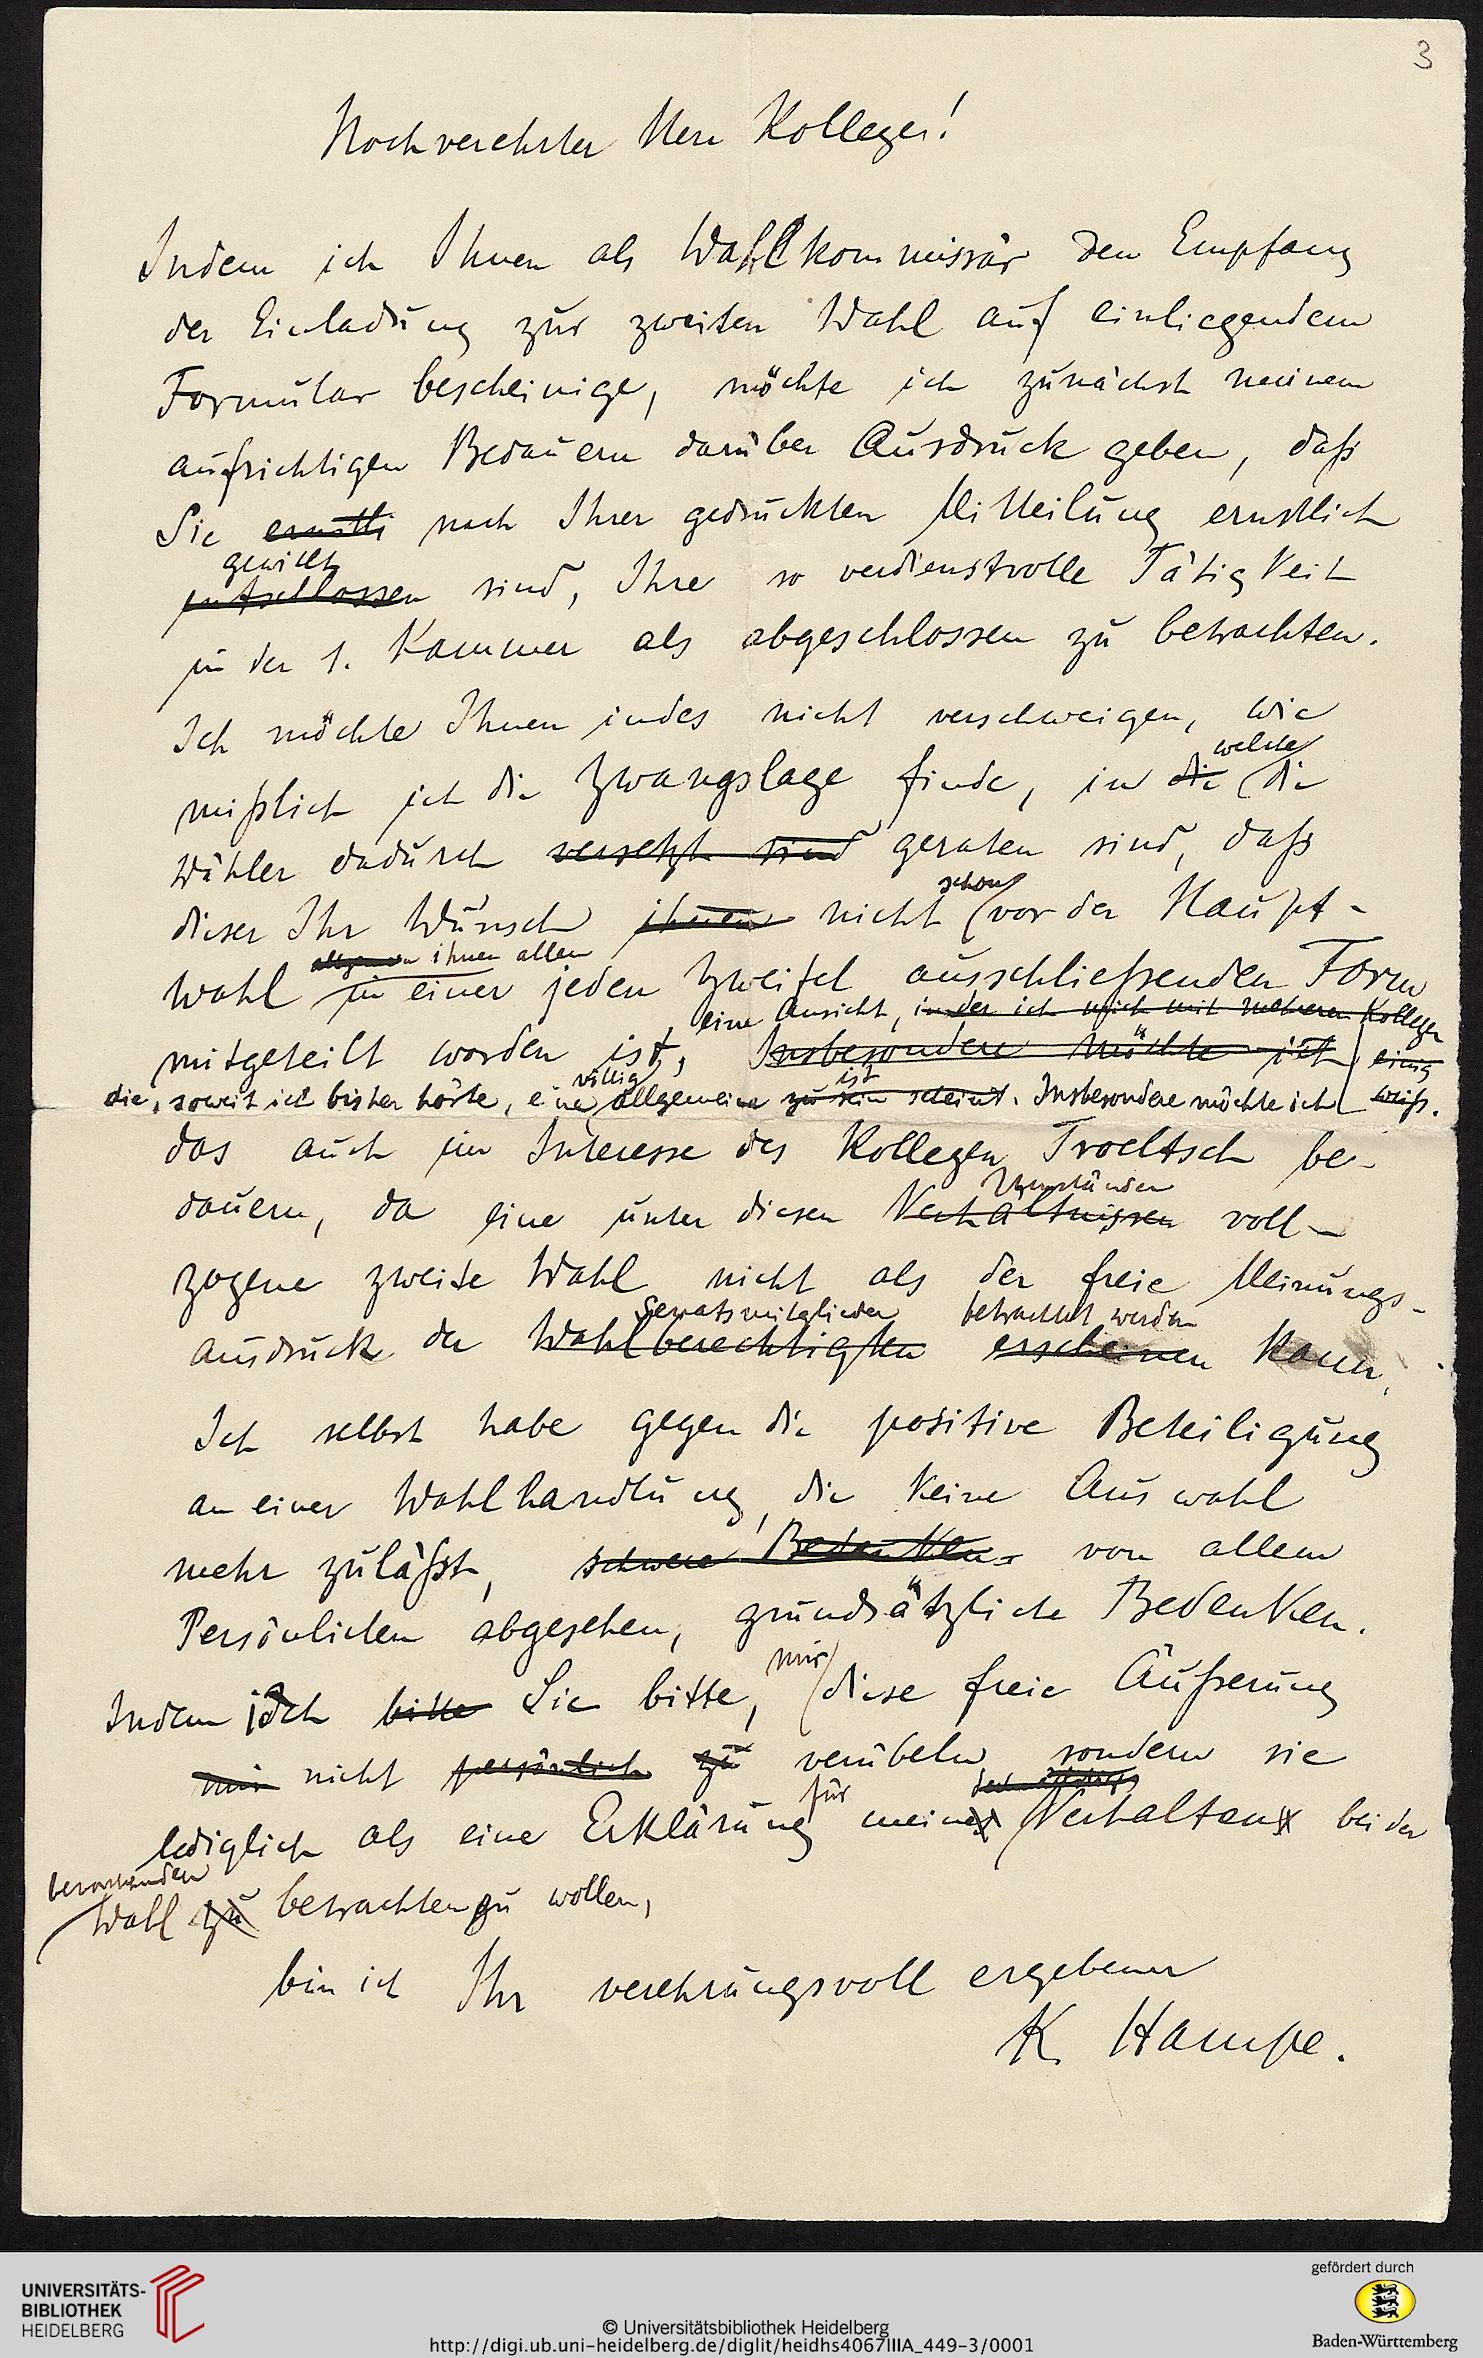 3
Hochverehrter Herr Kollege!
Indem ich Ihnen als Wahlkommissär den Empfang
der Einladung zur zweiten Wahl auf einliegendem
Formular bescheinige, möchte ich zunächst meinem
aufrichtigen Bedauern darüber Ausdruck geben, daß
Sie ernstli nach Ihrer gedruckten Mitteilung ernstlich
gewillt
entschlossen sind, Ihre so verdienstvolle Tätigkeit
in der 1. Kammer als abgeschlossen zu betrachten.
Ich möchte Ihnen indes nicht verschweigen, wie
welche
mißlich ich die Zwangslage finde, in die die
Wähler dadurch versetzt sind geraten sind, daß
schon
dieser Ihr Wunsch ihnen nicht vor der Haupt-
ihnen allen
wahl in einer jeden Zweifel ausschließenden Form
, eine Ansicht, in der ich mich mit mehreren Kollegen
mitgeteilt worden ist, Insbesondere möchte ich einig
völlig ist
die, soweit ich bisher hörte, eine allgemeine zu sein scheint. Insbesondere möchte ich weiß.
das auch im Interesse des Kollegen Troeltsch be-
Umständen
dauern, da eine unter diesen Verhältnissen voll-
zogene zweite Wahl nicht als der freie Meinungs-
Senatsmitglieder betrachtet werden
ausdruck der Wahlberechtigten erscheinen kann.
Ich selbst habe gegen die positive Beteiligung
an einer Wahlhandlung, die keine Auswahl
mehr zuläßt, schwere Bedenken von allem
Persönlichen abgesehen, grundsätzliche Bedenken.
mir
Indem ich bitte Sie bitte, diese freie Äußerung
mir nicht persönlich zu verübeln, sondern sie
für
lediglich als eine Erklärung meines Verhaltens bei der
bevorstehenden
Wahl zu betrachten zu wollen,
bin ich Ihr verehrungsvoll ergebener
K. Hampe.
UNIVERSITÄTS-
BIBLIOTHEK
HEIDELBERG
© Universitätsbibliothek Heidelberg
http://digi.ub.uni-heidelberg.de/diglit/heidhs4067IIIA_449-3/0001
gefördert durch
Baden-Württemberg